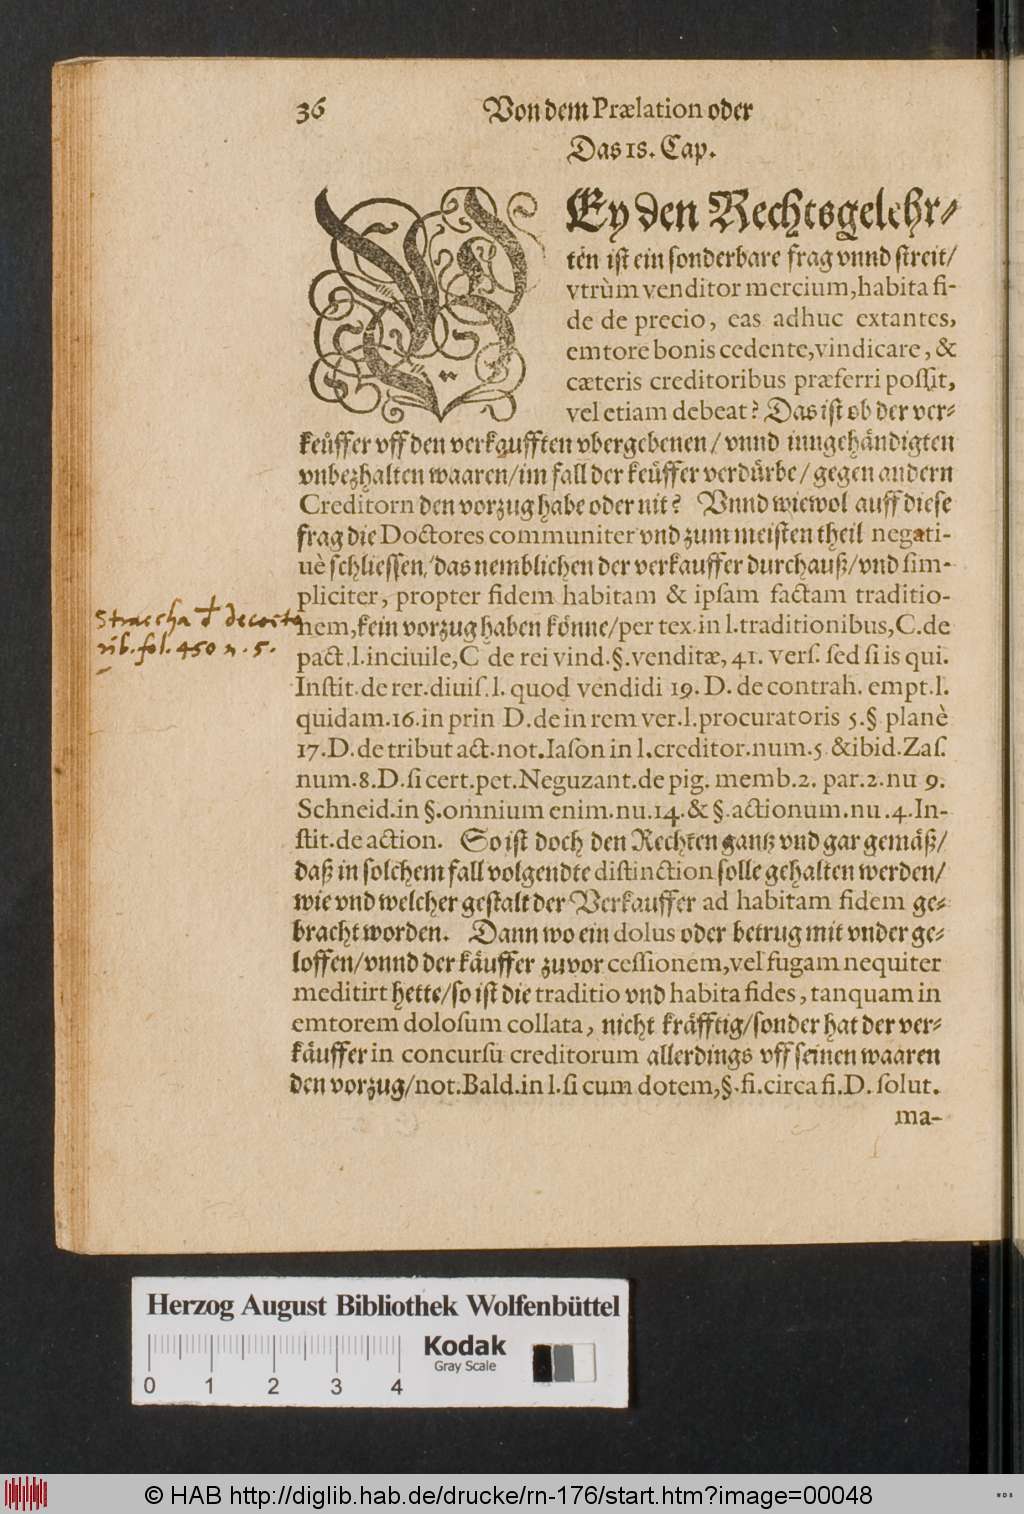 36 Von dem Prælation oder
Das 18. Cap.
BEy den Rechtsgelehr-
ten ist ein sonderbare frag vnnd streit/
vtrùm venditor mercium, habita fi-
de de precio, eas adhuc extantes,
emtore bonis cedente, vindicare, &
cæteris creditoribus præferri possit,
vel etiam debeat? Das ist ob der ver-
keuͤffer vff den verkaufften vbergebenen/ vnnd inngehaͤndigten
vnbezhalten waaren/im fall der keuͤffer verduͤrbe/ gegen andern
Creditorn den vorzug habe oder nit? Vnnd wiewol auff diese
frag die Doctores communiter vnd zum meisten theil negati-
uè schliessen/das nemblichen der verkauffer durchauß/vnd sim-
pliciter, propter fidem habitam & ipsam factam traditio-
nem, kein vorzug haben koͤnne/per tex. in l. traditionibus, C. de
pact. l. inciuile, C de rei vind. §. venditæ, 41. vers. sed si is qui.
Instit. de rer. diuis. l. quod vendidi 19. D. de contrah. empt. l.
quidam. 16. in prin D. de in rem ver. l. procuratoris 5. § planè
17. D. de tribut act. not. Iason in l. creditor. num. 5 & ibid. Zas.
num. 8. D. si cert. pet. Neguzant. de pig. memb. 2. par. 2. nu 9.
Schneid. in §. omnium enim. nu. 14. & §. actionum. nu. 4. In-
stit. de action. So ist doch den Rechten gantz vnd gar gemaͤß/
daß in solchem fall volgendte distinction solle gehalten werden/
wie vnd welcher gestalt der Verkauffer ad habitam fidem ge-
bracht worden. Dann wo ein dolus oder betrug mit vnder ge-
loffen/vnnd der kaͤuffer zuvor cessionem, vel fugam nequiter
meditirt hette/so ist die traditio vnd habita fides, tanquam in
emtorem dolosum collata, nicht kraͤfftig/sonder hat der ver-
kaͤuffer in concursũ creditorum allerdings vff seinen waaren
den vorzug/not. Bald. in l. si cum dotem, §. fi. circa fi. D. solut.
ma-
Straccha
rib. fol. 450 n. 5.
Herzog August Bibliothek Wolfenbüttel
Kodak
Gray Scale
0 1 2 3 4
© HAB http://diglib.hab.de/drucke/rn-176/start.htm?image=00048